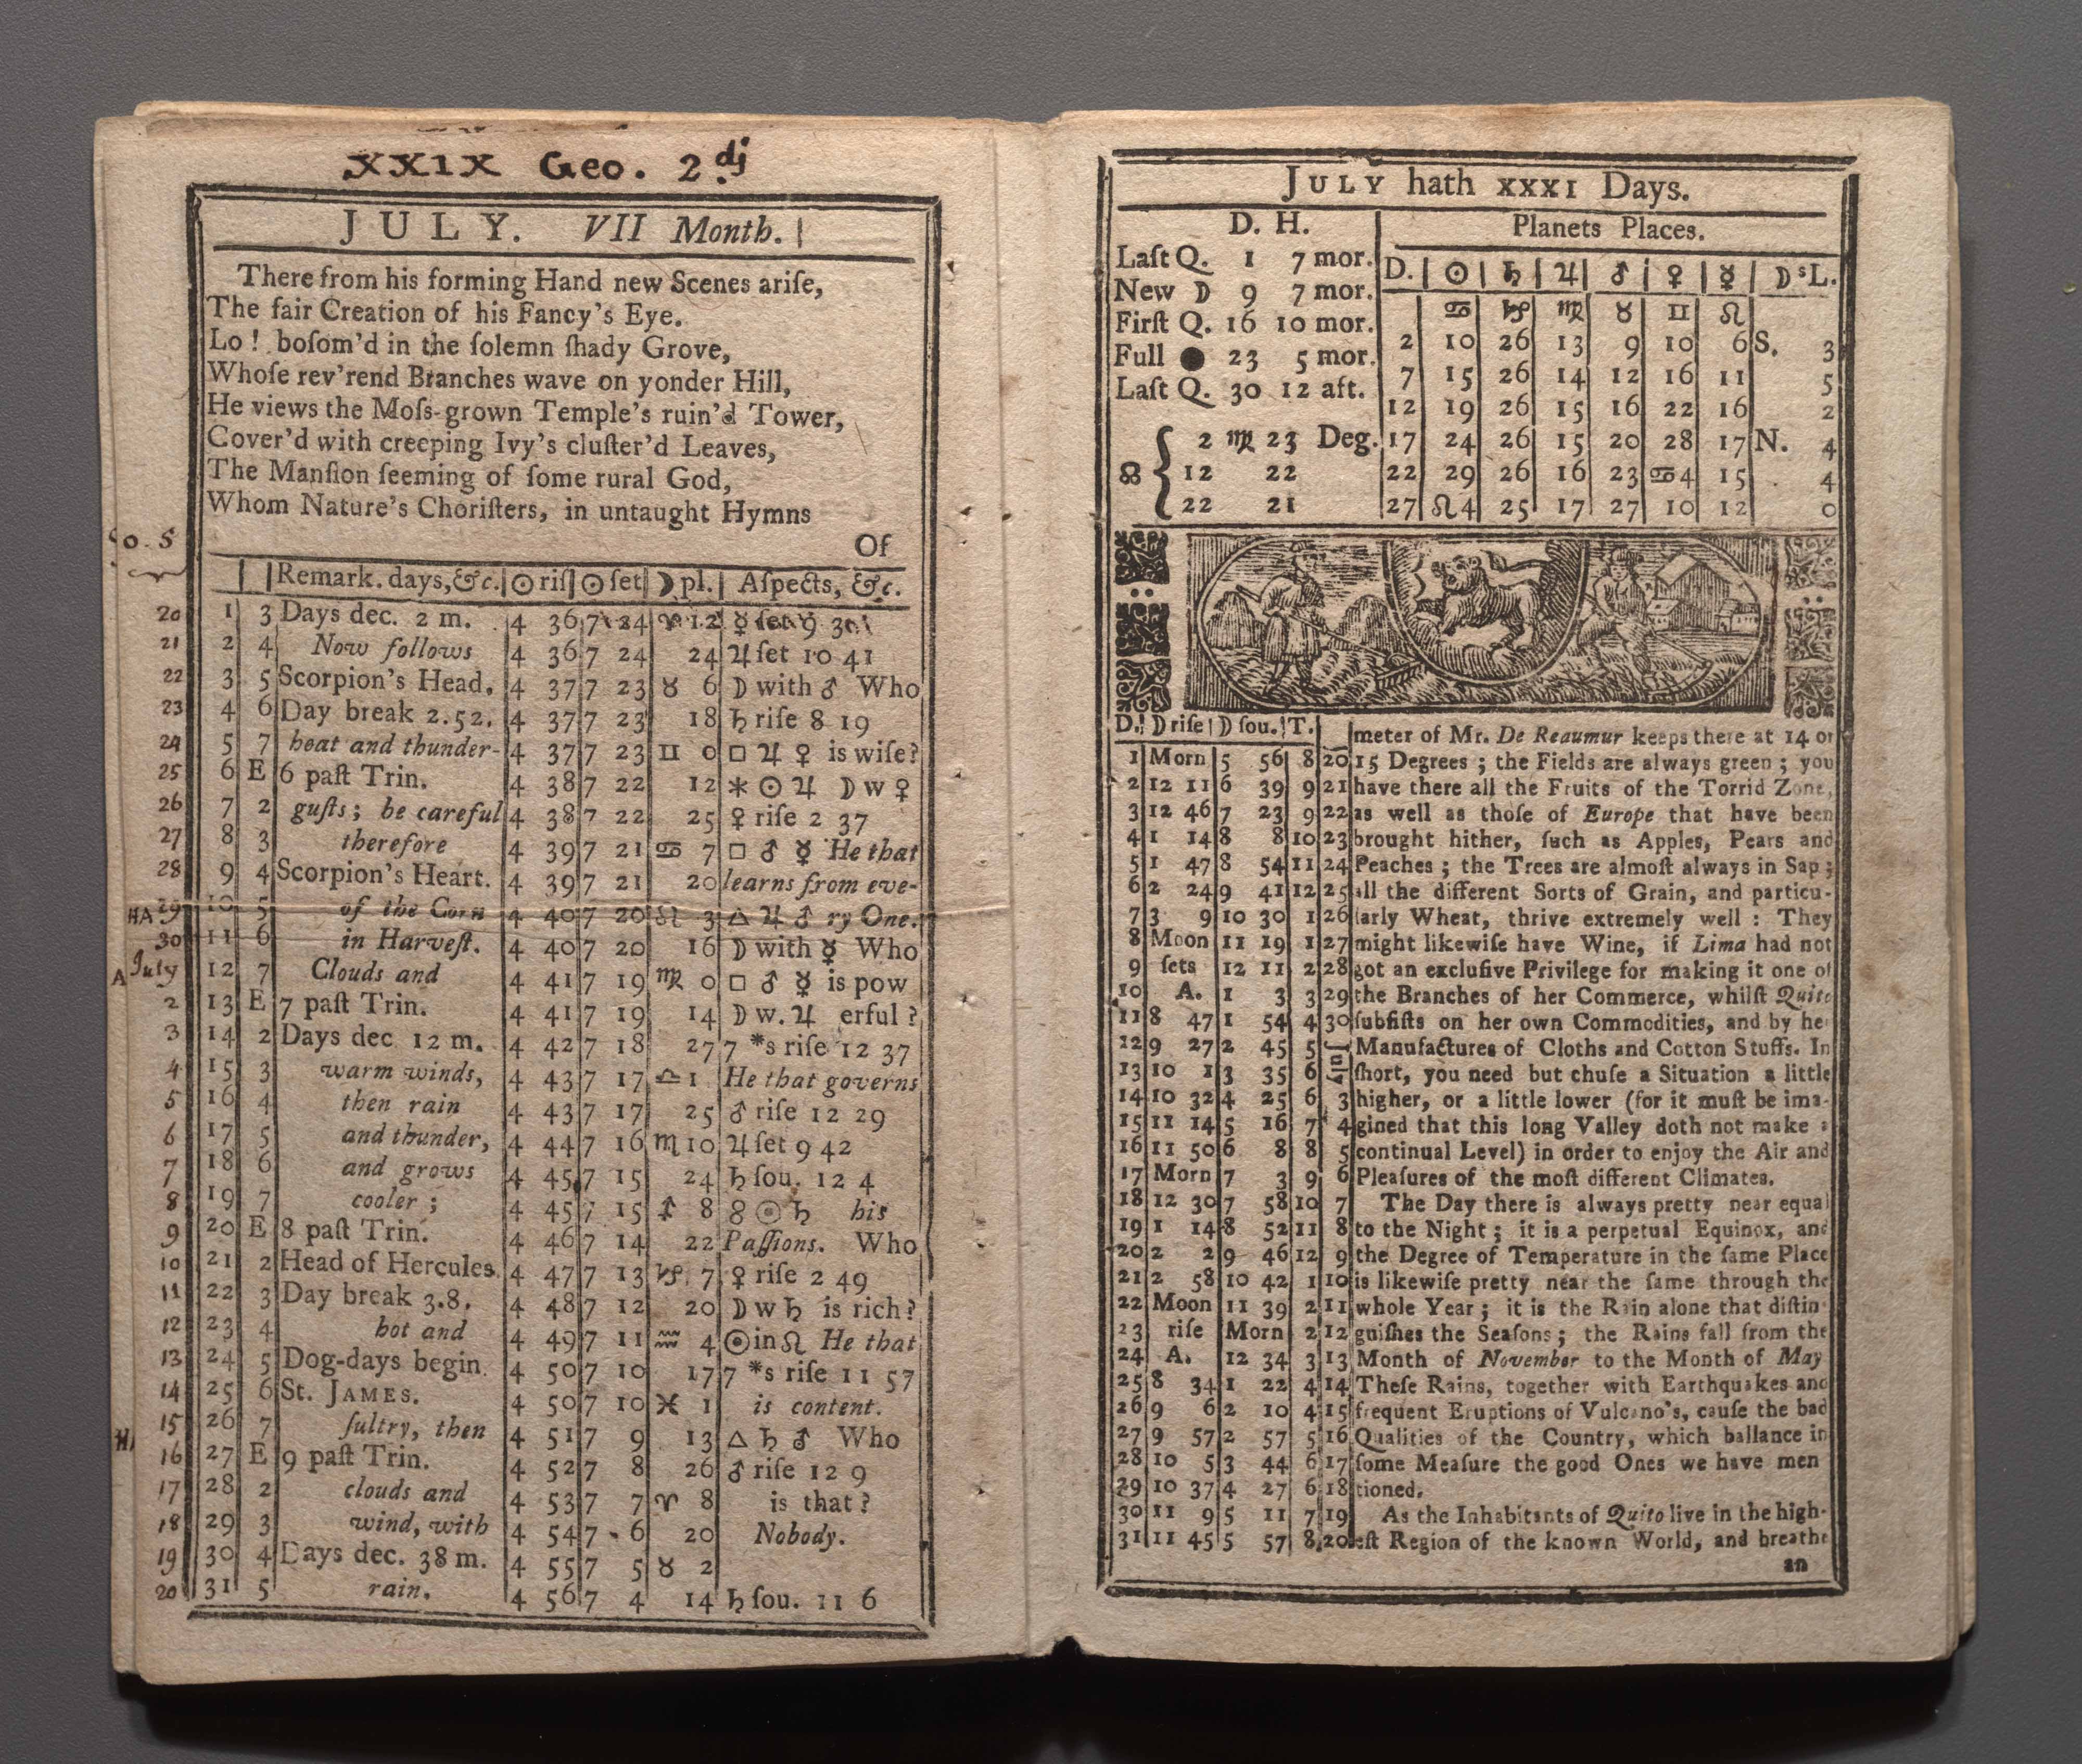 XXIX Geo. 2.dj
JULY. VII Month.
There from his forming Hand new Scenes ariſe,
The fair Creation of his Fancy's Eye.
Lo! boſom'd in the ſolemn ſhady Grove,
Whoſe rev'rend Branches wave on yonder Hill,
He views the Moſs-grown Temple's ruin'd Tower,
Cover'd with creeping Ivy's cluſter'd Leaves,
The Manſion ſeeming of ſome rural God,
Whom Nature's Choriſters, in untaught Hymns
Of
o. S
Remark. days, &c. ☉ riſ ☉ ſet ☽ pl. Aſpects, &c.
20 1 3 Days dec. 2 m. 4 36 7 24 ♈ 12 ☿ ſet 9 30
21 2 4 Now follows 4 36 7 24 24 ♃ ſet 10 41
22 3 5 Scorpion's Head. 4 37 7 23 ♉ 6 ☽ with ♂ Who
23 4 6 Day break 2.52. 4 37 7 23 18 ♄ riſe 8 19
24 5 7 heat and thunder- 4 37 7 23 ♊ 0 □ ♃ ♀ is wiſe?
25 6 E 6 paſt Trin. 4 38 7 22 12 ⚹ ☉ ♃ ☽ w ♀
26 7 2 guſts; be careful 4 38 7 22 25 ♀ riſe 2 37
27 8 3 therefore 4 39 7 21 ♋ 7 □ ♂ ☿ He that
28 9 4 Scorpion's Heart. 4 39 7 21 20 learns from eve-
HA 29 10 5 of the Corn 4 40 7 20 ♌ 3 △ ♃ ♂ ry One.
30 11 6 in Harveſt. 4 40 7 20 16 ☽ with ☿ Who
A July 12 7 Clouds and 4 41 7 19 ♍ 0 □ ♂ ☿ is pow
2 13 E 7 paſt Trin. 4 41 7 19 14 ☽ w. ♃ erful?
3 14 2 Days dec 12 m. 4 42 7 18 27 7 *s riſe 12 37
4 15 3 warm winds, 4 43 7 17 ♎ 1 He that governs
5 16 4 then rain 4 43 7 17 25 ♂ riſe 12 29
6 17 5 and thunder, 4 44 7 16 ♏ 10 ♃ ſet 9 42
7 18 6 and grows 4 45 7 15 24 ♄ ſou. 12 4
8 19 7 cooler; 4 45 7 15 ♐ 8 ☍ ☉ ♄ his
9 20 E 8 paſt Trin. 4 46 7 14 22 Paſſions. Who
10 21 2 Head of Hercules 4 47 7 13 ♑ 7 ♀ riſe 2 49
11 22 3 Day break 3.8. 4 48 7 12 20 ☽ w ♄ is rich?
12 23 4 hot and 4 49 7 11 ♒ 4 ☉ in ♌ He that
13 24 5 Dog-days begin. 4 50 7 10 17 7 *s riſe 11 57
14 25 6 St. JAMES. 4 50 7 10 ♓ 1 is content.
15 26 7 ſultry, then 4 51 7 9 13 △ ♄ ♂ Who
16 27 E 9 paſt Trin. 4 52 7 8 26 ♂ riſe 12 9
17 28 2 clouds and 4 53 7 7 ♈ 8 is that?
18 29 3 wind, with 4 54 7 6 20 Nobody.
19 30 4 Days dec. 38 m. 4 55 7 5 ♉ 2
20 31 5 rain. 4 56 7 4 14 ♄ ſou. 11 6
JULY hath XXXI Days.
D. H. Planets Places.
Laſt Q. 1 7 mor.
New ☽ 9 7 mor.
Firſt Q. 16 10 mor.
Full ● 23 5 mor.
Laſt Q. 30 12 aft.
☊ { 2 ♍ 23 Deg.
12 22
22 21
D. ☉ ♄ ♃ ♂ ♀ ☿ ☽ˢL.
♋ ♑ ♍ ♉ ♊ ♌
2 10 26 13 9 10 6 S. 3
7 15 26 14 12 16 11 5
12 19 26 15 16 22 16 2
17 24 26 15 20 28 17 N. 4
22 29 26 16 23 ♋4 15 4
27 ♌4 25 17 27 10 12 0
D. ☽ riſe ☽ ſou. T.
1 Morn 5 56 8 20
2 12 11 6 39 9 21
3 12 46 7 23 9 22
4 1 14 8 8 10 23
5 1 47 8 54 11 24
6 2 24 9 41 12 25
7 3 9 10 30 1 26
8 Moon 11 19 1 27
9 ſets 12 11 2 28
10 A. 1 3 3 29
11 8 47 1 54 4 30
12 9 27 2 45 5 July
13 10 1 3 35 6
14 10 32 4 25 6 3
15 11 14 5 16 7 4
16 11 50 6 8 8 5
17 Morn 7 3 9 6
18 12 30 7 58 10 7
19 1 14 8 52 11 8
20 2 2 9 46 12 9
21 2 58 10 42 1 10
22 Moon 11 39 2 11
23 riſe Morn 2 12
24 A. 12 34 3 13
25 8 34 1 22 4 14
26 9 6 2 10 4 15
27 9 57 2 57 5 16
28 10 5 3 44 6 17
29 10 37 4 27 6 18
30 11 9 5 11 7 19
31 11 45 5 57 8 20
meter of Mr. De Reaumur keeps there at 14 or
15 Degrees; the Fields are always green; you
have there all the Fruits of the Torrid Zone,
as well as thoſe of Europe that have been
brought hither, ſuch as Apples, Pears and
Peaches; the Trees are almoſt always in Sap;
all the different Sorts of Grain, and particu-
larly Wheat, thrive extremely well: They
might likewiſe have Wine, if Lima had not
got an excluſive Privilege for making it one of
the Branches of her Commerce, whilſt Quito
ſubſiſts on her own Commodities, and by her
Manufactures of Cloths and Cotton Stuffs. In
ſhort, you need but chuſe a Situation a little
higher, or a little lower (for it muſt be ima-
gined that this long Valley doth not make a
continual Level) in order to enjoy the Air and
Pleaſures of the moſt different Climates.
The Day there is always pretty near equal
to the Night; it is a perpetual Equinox, and
the Degree of Temperature in the ſame Place
is likewiſe pretty near the ſame through the
whole Year; it is the Rain alone that diſtin-
guiſhes the Seaſons; the Rains fall from the
Month of November to the Month of May
Theſe Rains, together with Earthquakes and
frequent Eruptions of Vulcano's, cauſe the bad
Qualities of the Country, which ballance in
ſome Meaſure the good Ones we have men
tioned.
As the Inhabitants of Quito live in the high-
eſt Region of the known World, and breathe
an